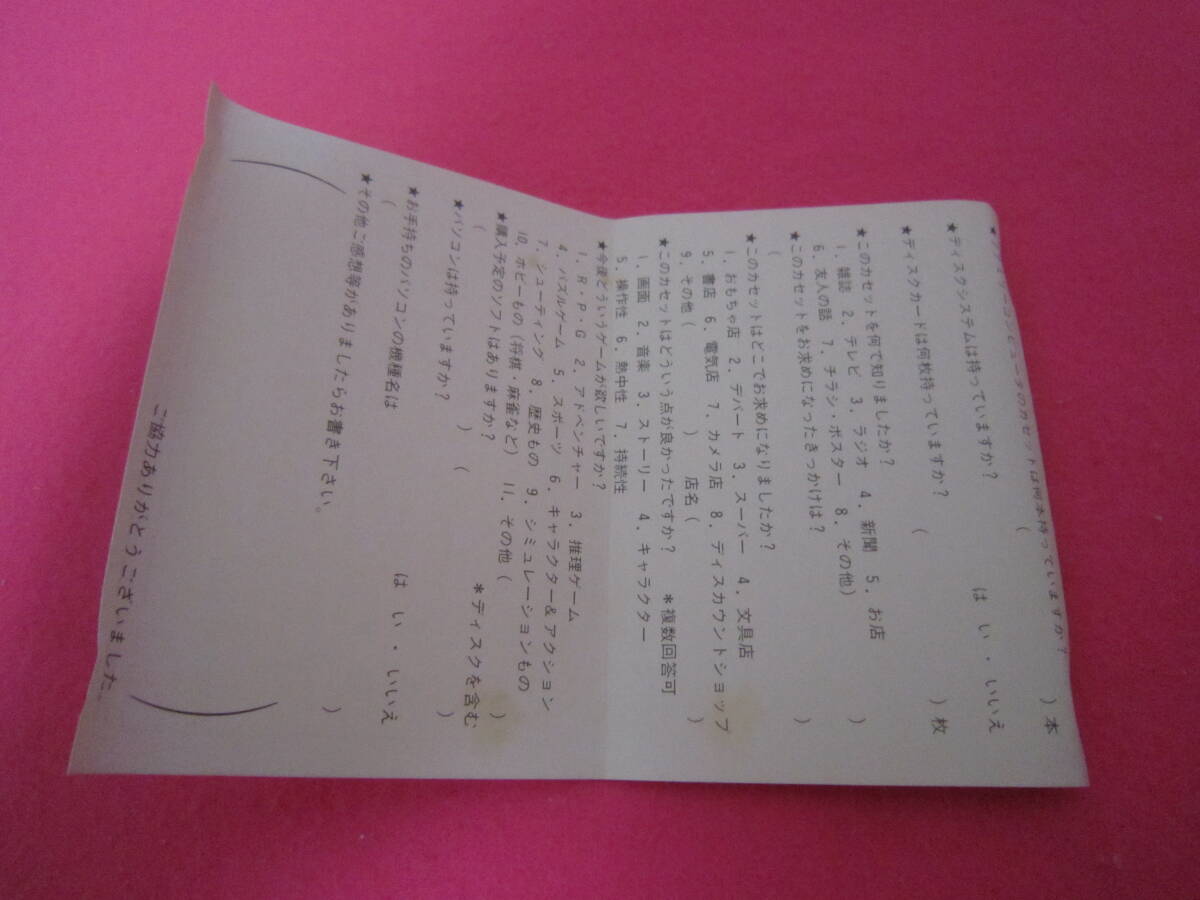 コンピュータのカセットは何本持っていますか?
( )本
★ディスクシステムは持っていますか? はい・いいえ
★ディスクカードは何枚持っていますか? ( )枚
★このカセットを何で知りましたか?
1. 雑誌 2. テレビ 3. ラジオ 4. 新聞 5. お店
6. 友人の話 7. チラシ・ポスター 8. その他( )
★このカセットをお求めになったきっかけは?
( )
★このカセットはどこでお求めになりましたか?
1. おもちゃ店 2. デパート 3. スーパー 4. 文具店
5. 書店 6. 電気店 7. カメラ店 8. ディスカウントショップ
9. その他( ) 店名( )
★このカセットはどういう点が良かったですか? *複数回答可
1. 画面 2. 音楽 3. ストーリー 4. キャラクター
5. 操作性 6. 熱中性 7. 持続性
★今後どういうゲームが欲しいですか?
1. R・P・G 2. アドベンチャー 3. 推理ゲーム
4. パズルゲーム 5. スポーツ 6. キャラクター&アクション
7. シューティング 8. 歴史もの 9. シミュレーションもの
10. ホビーもの(将棋・麻雀など) 11. その他( )
★購入予定のソフトはありますか? *ディスクを含む
( ) ( )
★パソコンは持っていますか? はい・いいえ
★お手持ちのパソコンの機種名は
( )
★その他ご感想等がありましたらお書き下さい。
( )
ご協力ありがとうございました。